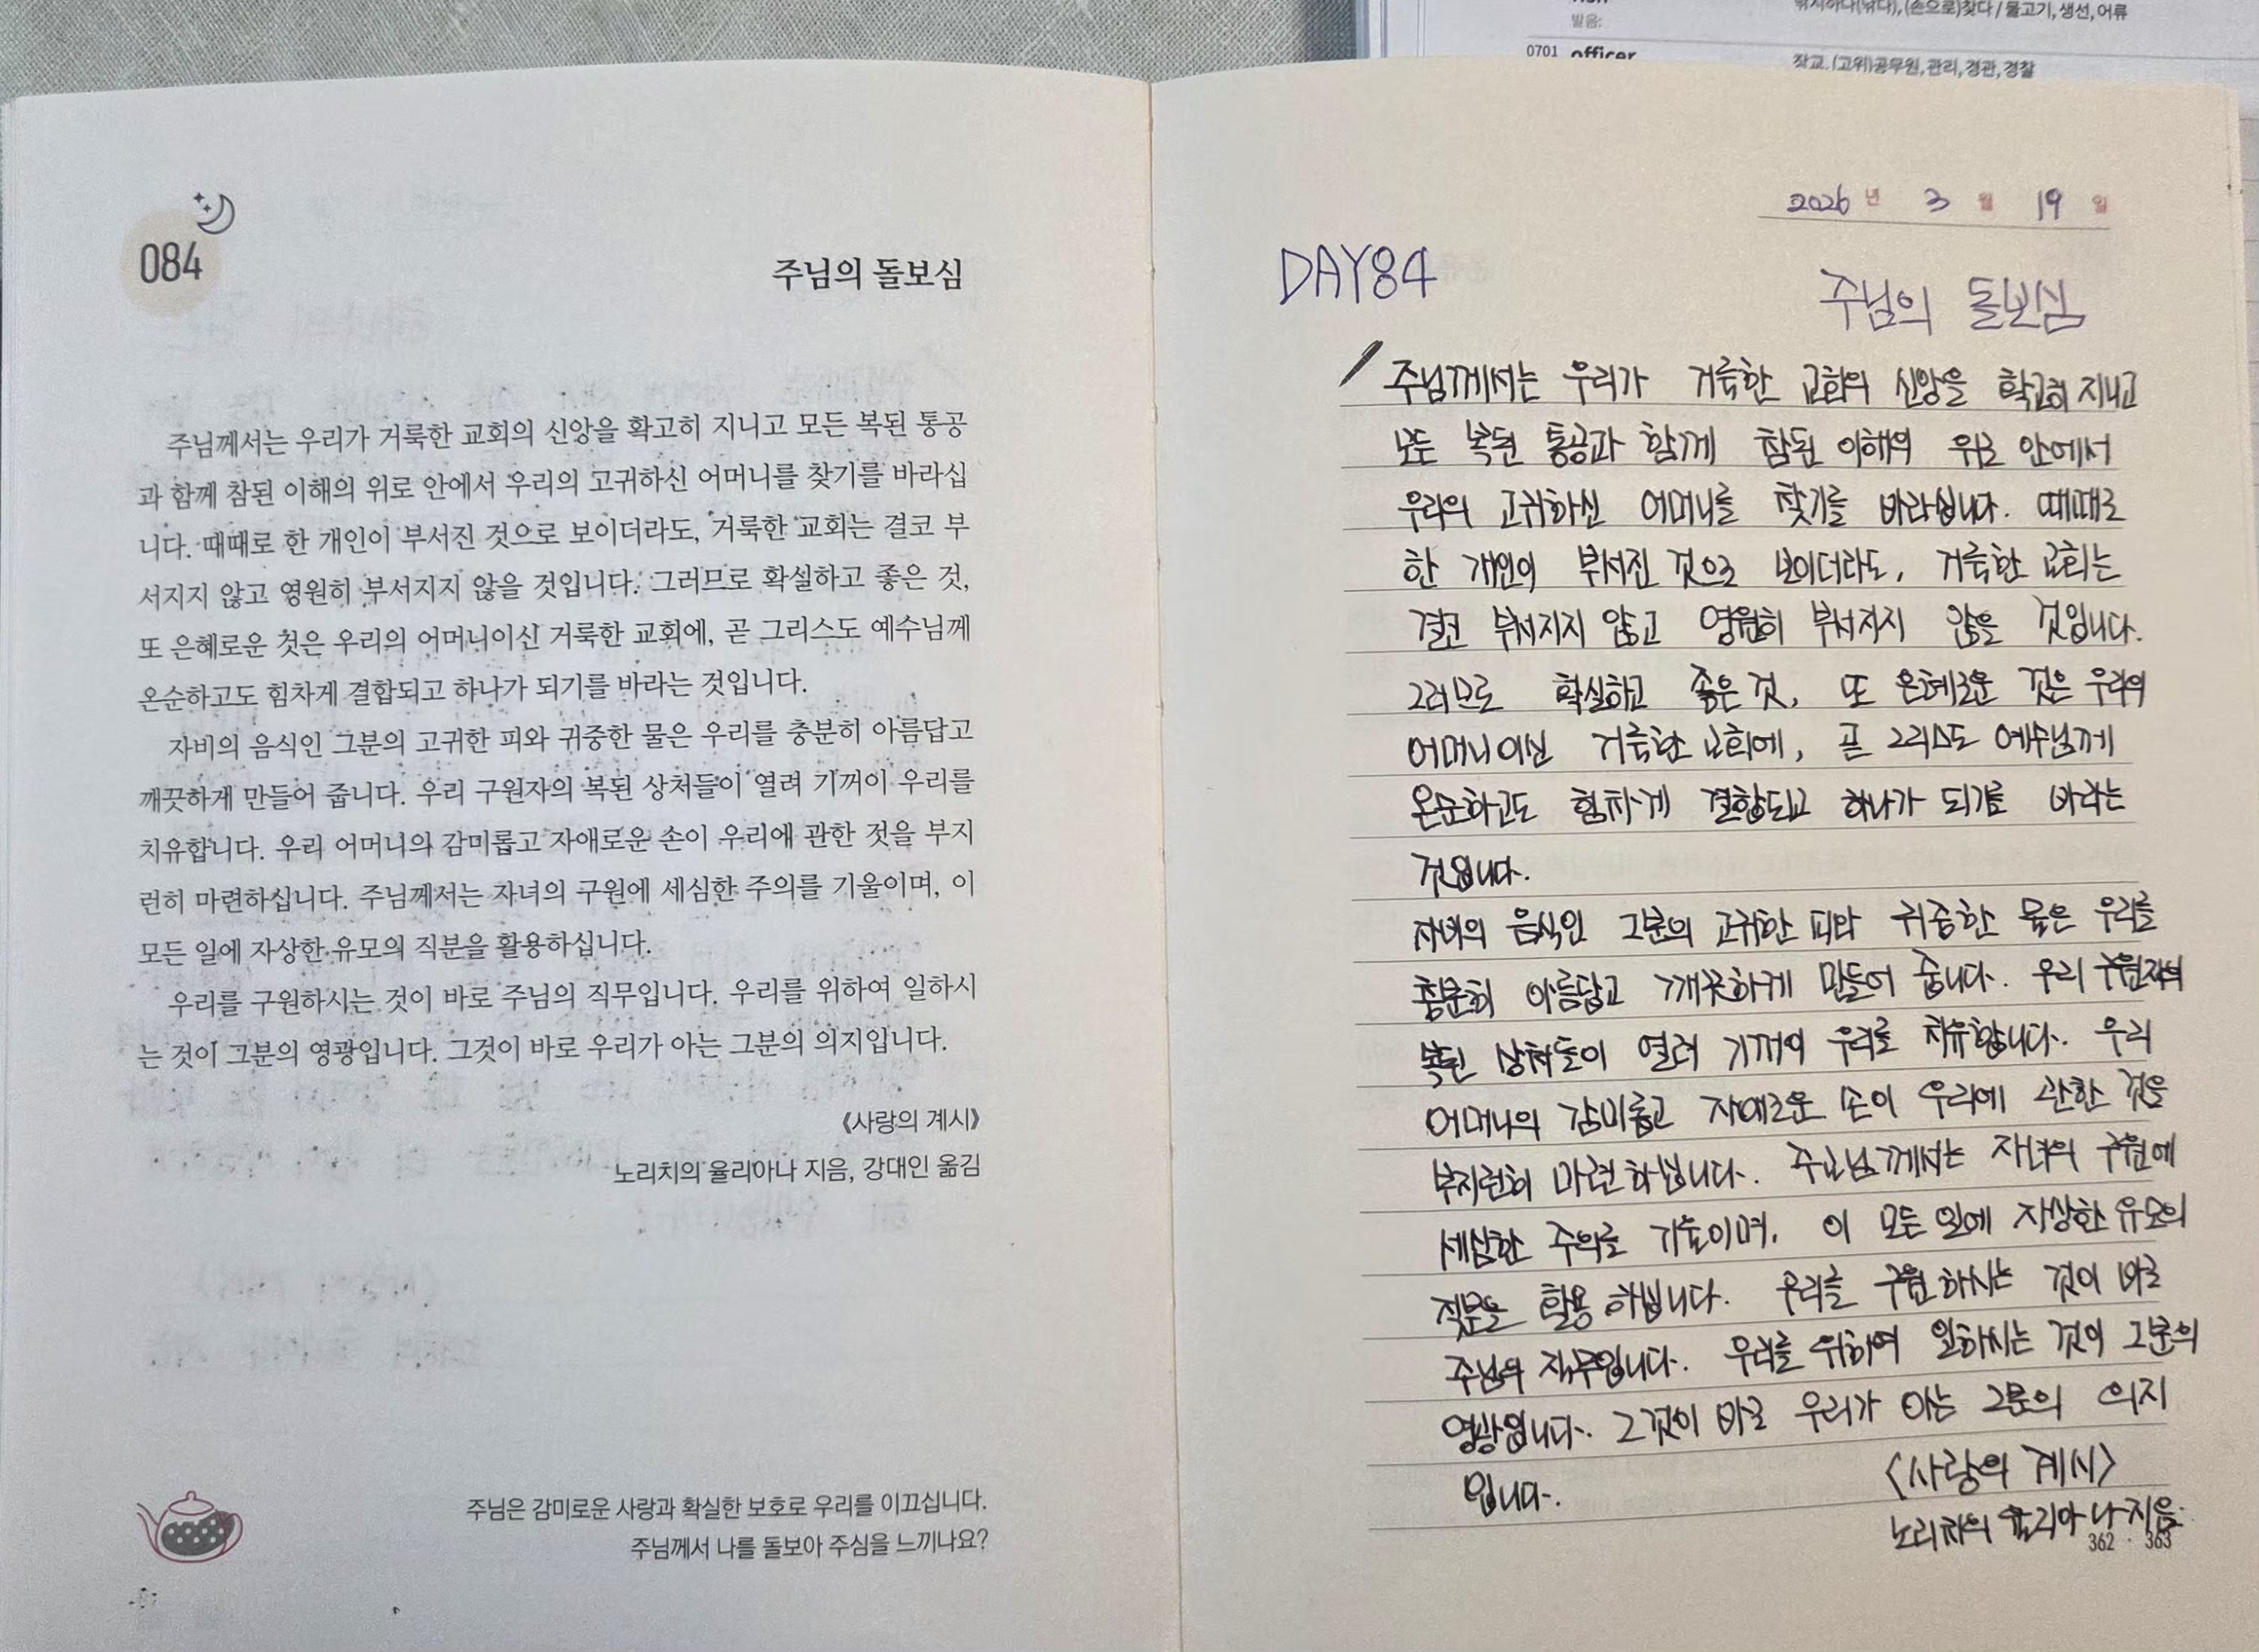 발음:
0701 officer
장교, (고위)공무원, 관리, 경관, 경찰
낚시하다(낚다), (손으로)찾다 / 물고기, 생선, 어류
084
주님의 돌보심
주님께서는 우리가 거룩한 교회의 신앙을 확고히 지니고 모든 복된 통공
과 함께 참된 이해의 위로 안에서 우리의 고귀하신 어머니를 찾기를 바라십
니다. 때때로 한 개인이 부서진 것으로 보이더라도, 거룩한 교회는 결코 부
서지지 않고 영원히 부서지지 않을 것입니다. 그러므로 확실하고 좋은 것,
또 은혜로운 것은 우리의 어머니이신 거룩한 교회에, 곧 그리스도 예수님께
온순하고도 힘차게 결합되고 하나가 되기를 바라는 것입니다.
자비의 음식인 그분의 고귀한 피와 귀중한 물은 우리를 충분히 아름답고
깨끗하게 만들어 줍니다. 우리 구원자의 복된 상처들이 열려 기꺼이 우리를
치유합니다. 우리 어머니의 감미롭고 자애로운 손이 우리에 관한 것을 부지
런히 마련하십니다. 주님께서는 자녀의 구원에 세심한 주의를 기울이며, 이
모든 일에 자상한 유모의 직분을 활용하십니다.
우리를 구원하시는 것이 바로 주님의 직무입니다. 우리를 위하여 일하시
는 것이 그분의 영광입니다. 그것이 바로 우리가 아는 그분의 의지입니다.
《사랑의 계시》
노리치의 율리아나 지음, 강대인 옮김
주님은 감미로운 사랑과 확실한 보호로 우리를 이끄십니다.
주님께서 나를 돌보아 주심을 느끼나요?
2026 년 3 월 19 일
DAY84
주님의 돌보심
주님께서는 우리가 거룩한 교회의 신앙을 확고히 지니고
모든 복된 통공과 함께 참된 이해의 위로 안에서
우리의 고귀하신 어머니를 찾기를 바라십니다. 때때로
한 개인이 부서진 것으로 보이더라도, 거룩한 교회는
결코 부서지지 않고 영원히 부서지지 않을 것입니다.
그러므로 확실하고 좋은 것, 또 은혜로운 것은 우리의
어머니이신 거룩한 교회에, 곧 그리스도 예수님께
온순하고도 힘차게 결합되고 하나가 되기를 바라는
것입니다.
자비의 음식인 그분의 고귀한 피와 귀중한 물은 우리를
충분히 아름답고 깨끗하게 만들어 줍니다. 우리 구원자의
복된 상처들이 열려 기꺼이 우리를 치유합니다. 우리
어머니의 감미롭고 자애로운 손이 우리에 관한 것을
부지런히 마련하십니다. 주님께서는 자녀의 구원에
세심한 주의를 기울이며, 이 모든 일에 자상한 유모의
직분을 활용하십니다. 우리를 구원하시는 것이 바로
주님의 직무입니다. 우리를 위하여 일하시는 것이 그분의
영광입니다. 그것이 바로 우리가 아는 그분의 의지
입니다.
<사랑의 계시>
노리치의 율리아나 지음.
362 · 363